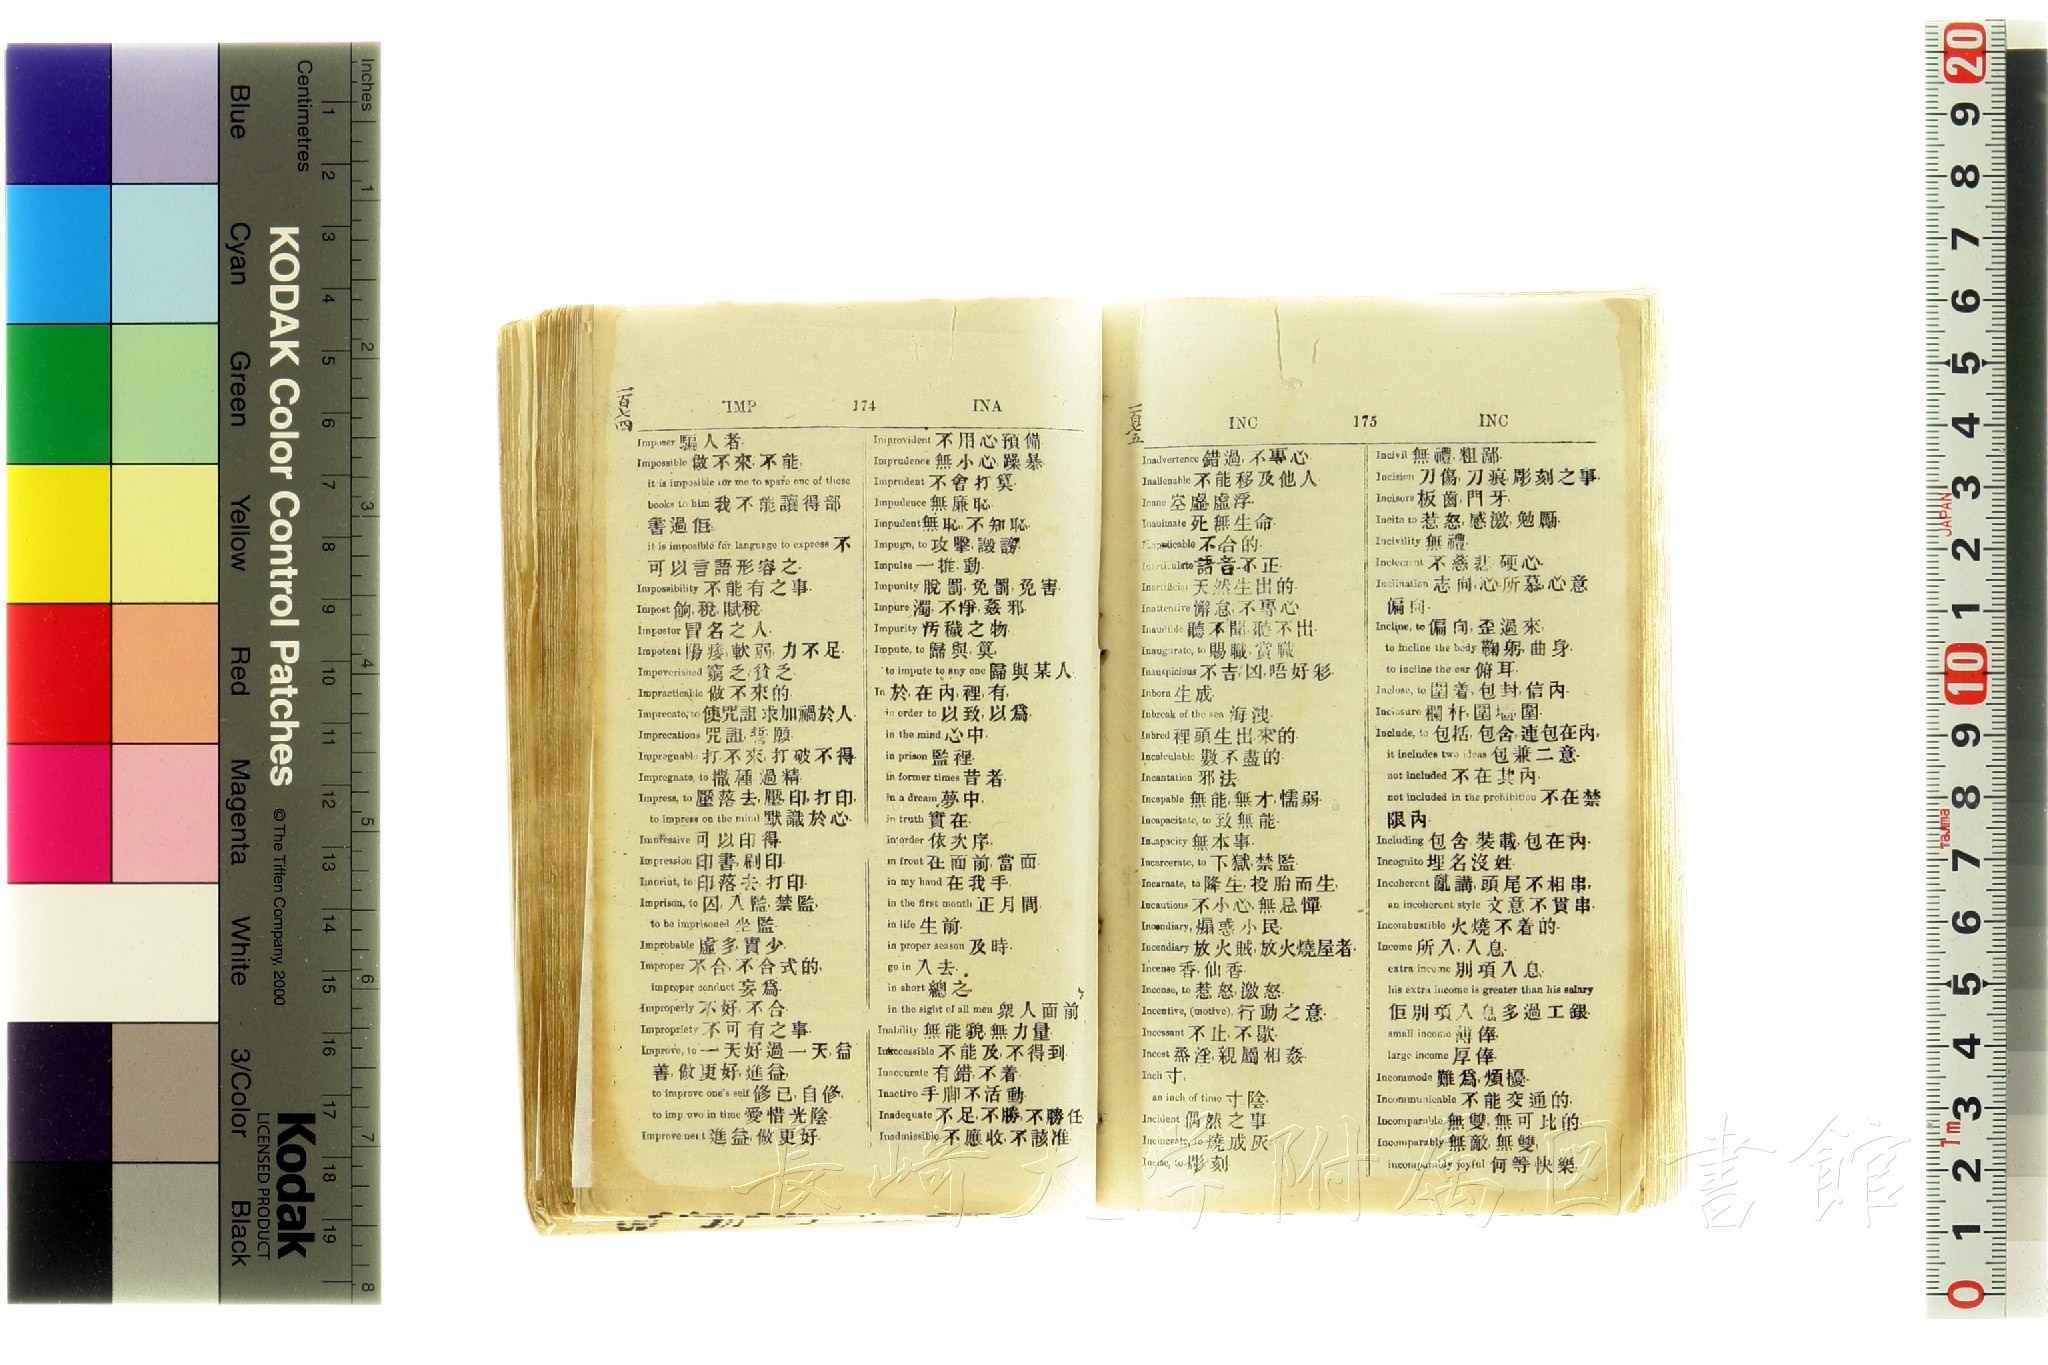 Inches
Centimetres
Blue
Cyan
Green
Yellow
Red
Magenta
White
3/Color
Black
KODAK Color Control Patches
© The Tiffen Company, 2000
Kodak
LICENSED PRODUCT
一百七四
IMP 174 INA
Imposer 騙人者.
Impossible 做不來, 不能,
it is imposible for me to spare one of these
books to him 我不能讓得部
書過佢.
it is imposible for language to express 不
可以言語形容之.
Impossibility 不能有之事.
Impost 餉, 稅, 賦稅.
Impostor 冒名之人.
Impotent 陽痿, 軟弱, 力不足.
Impoverished 窮乏, 貧乏.
Impracticable 做不來的.
Imprecate, to 使咒詛求加禍於人.
Imprecations 咒詛, 誓願.
Impregnable 打不來, 打破不得.
Impregnate, to 撒種過精.
Impress, to 壓落去, 壓印, 打印,
to impress on the mind 默識於心.
Impressive 可以印得.
Impression 印書, 刷印.
Imprint, to 印落去, 打印.
Imprison, to 囚, 入監, 禁監,
to be imprisoned 坐監.
Improbable 虛多, 實少.
Improper 不合, 不合式的,
improper conduct 妄爲.
Improperly 不好, 不合.
Impropriety 不可有之事.
Improve, to 一天好過一天, 益
善, 做更好, 進益,
to improve one's self 修己, 自修,
to improve in time 愛惜光陰.
Improvement 進益, 做更好.
Improvident 不用心預備.
Imprudence 無小心, 躁暴.
Imprudent 不會打算.
Impudence 無廉恥.
Impudent 無恥, 不知恥.
Impugn, to 攻擊, 譭謗.
Impulse 一推, 動.
Impunity 脫罰, 免罰, 免害.
Impure 濁, 不凈, 姦邪.
Impurity 汚穢之物.
Impute, to 歸與, 算.
to impute to any one 歸與某人.
In 於, 在內, 裡, 有,
in order to 以致, 以爲.
in the mind 心中.
in prison 監裡.
in former times 昔者.
in a dream 夢中.
in truth 實在.
in order 依次序.
in front 在面前, 當面.
in my hand 在我手.
in the first month 正月間.
in life 生前.
in proper season 及時.
go in 入去.
in short 總之.
in the sight of all men 衆人面前
Inability 無能貌, 無力量.
Inaccessible 不能及, 不得到.
Inaccurate 有錯, 不着.
Inactive 手脚不活動.
Inadequate 不足, 不勝, 不勝任
Inadmissible 不應收, 不該准.
INC 175 INC
Inadvertence 錯過, 不專心.
Inalienable 不能移及他人.
Inane 空虛, 虛浮.
Inanimate 死, 無生命.
Inapplicable 不合的.
Inarticulate 語音不正.
Inartificial 天然生出的.
Inattentive 懈怠, 不專心.
Inaudible 聽不聞, 聽不出.
Inaugurate, to 賜職, 賞職.
Inauspicious 不吉, 凶, 唔好彩.
Inborn 生成.
Inbreak of the sea 海洩.
Inbred 裡頭生出來的.
Incalculable 數不盡的.
Incantation 邪法.
Incapable 無能, 無才, 懦弱.
Incapacitate, to 致無能.
Incapacity 無本事.
Incarcerate, to 下獄, 禁監.
Incarnate, to 降生, 投胎而生,
Incautious 不小心, 無忌憚.
Incendiary, 煽惑小民.
Incendiary 放火賊, 放火燒屋者.
Incense 香, 仙香.
Incense, to 惹怒, 激怒.
Incentive, (motive), 行動之意.
Incessant 不止, 不歇.
Incest 烝淫, 親屬相姦.
Inch 寸,
an inch of time 寸陰.
Incident 偶然之事.
Incinerate, to 燒成灰.
Incise, to 彫刻.
Incivil 無禮, 粗鄙.
Incision 刀傷, 刀痕, 彫刻之事.
Incisors 板齒, 門牙.
Incite to 惹怒, 感激, 勉勵.
Incivility 無禮.
Inclement 不慈悲, 硬心.
Inclination 志向, 心所慕, 心意
偏向.
Incline, to 偏向, 歪過來.
to incline the body 鞠躬, 曲身.
to incline the ear 俯耳.
Inclose, to 圍着, 包封, 信內.
Inclosure 欄杆, 圍墻, 圍.
Include, to 包括, 包含, 連包在內,
it includes two ideas 包兼二意.
not included 不在其內.
not included in the prohibition 不在禁
限內.
Including 包含, 裝載, 包在內.
Incognito 埋名沒姓.
Incoherent 亂講, 頭尾不相串,
an incoherent style 文意不貫串.
Incombustible 火燒不着的.
Income 所入, 入息.
extra income 別項入息.
his extra income is greater than his salary
佢別項入息多過工銀.
small income 薄俸.
large income 厚俸.
Incommode 難爲, 煩擾.
Incommunicable 不能交通的.
Incomparable 無雙, 無可比的.
Incomparably 無敵, 無雙,
incomparably joyful 何等快樂.
長崎大学附属図書館
JAPAN
Tajima
1m